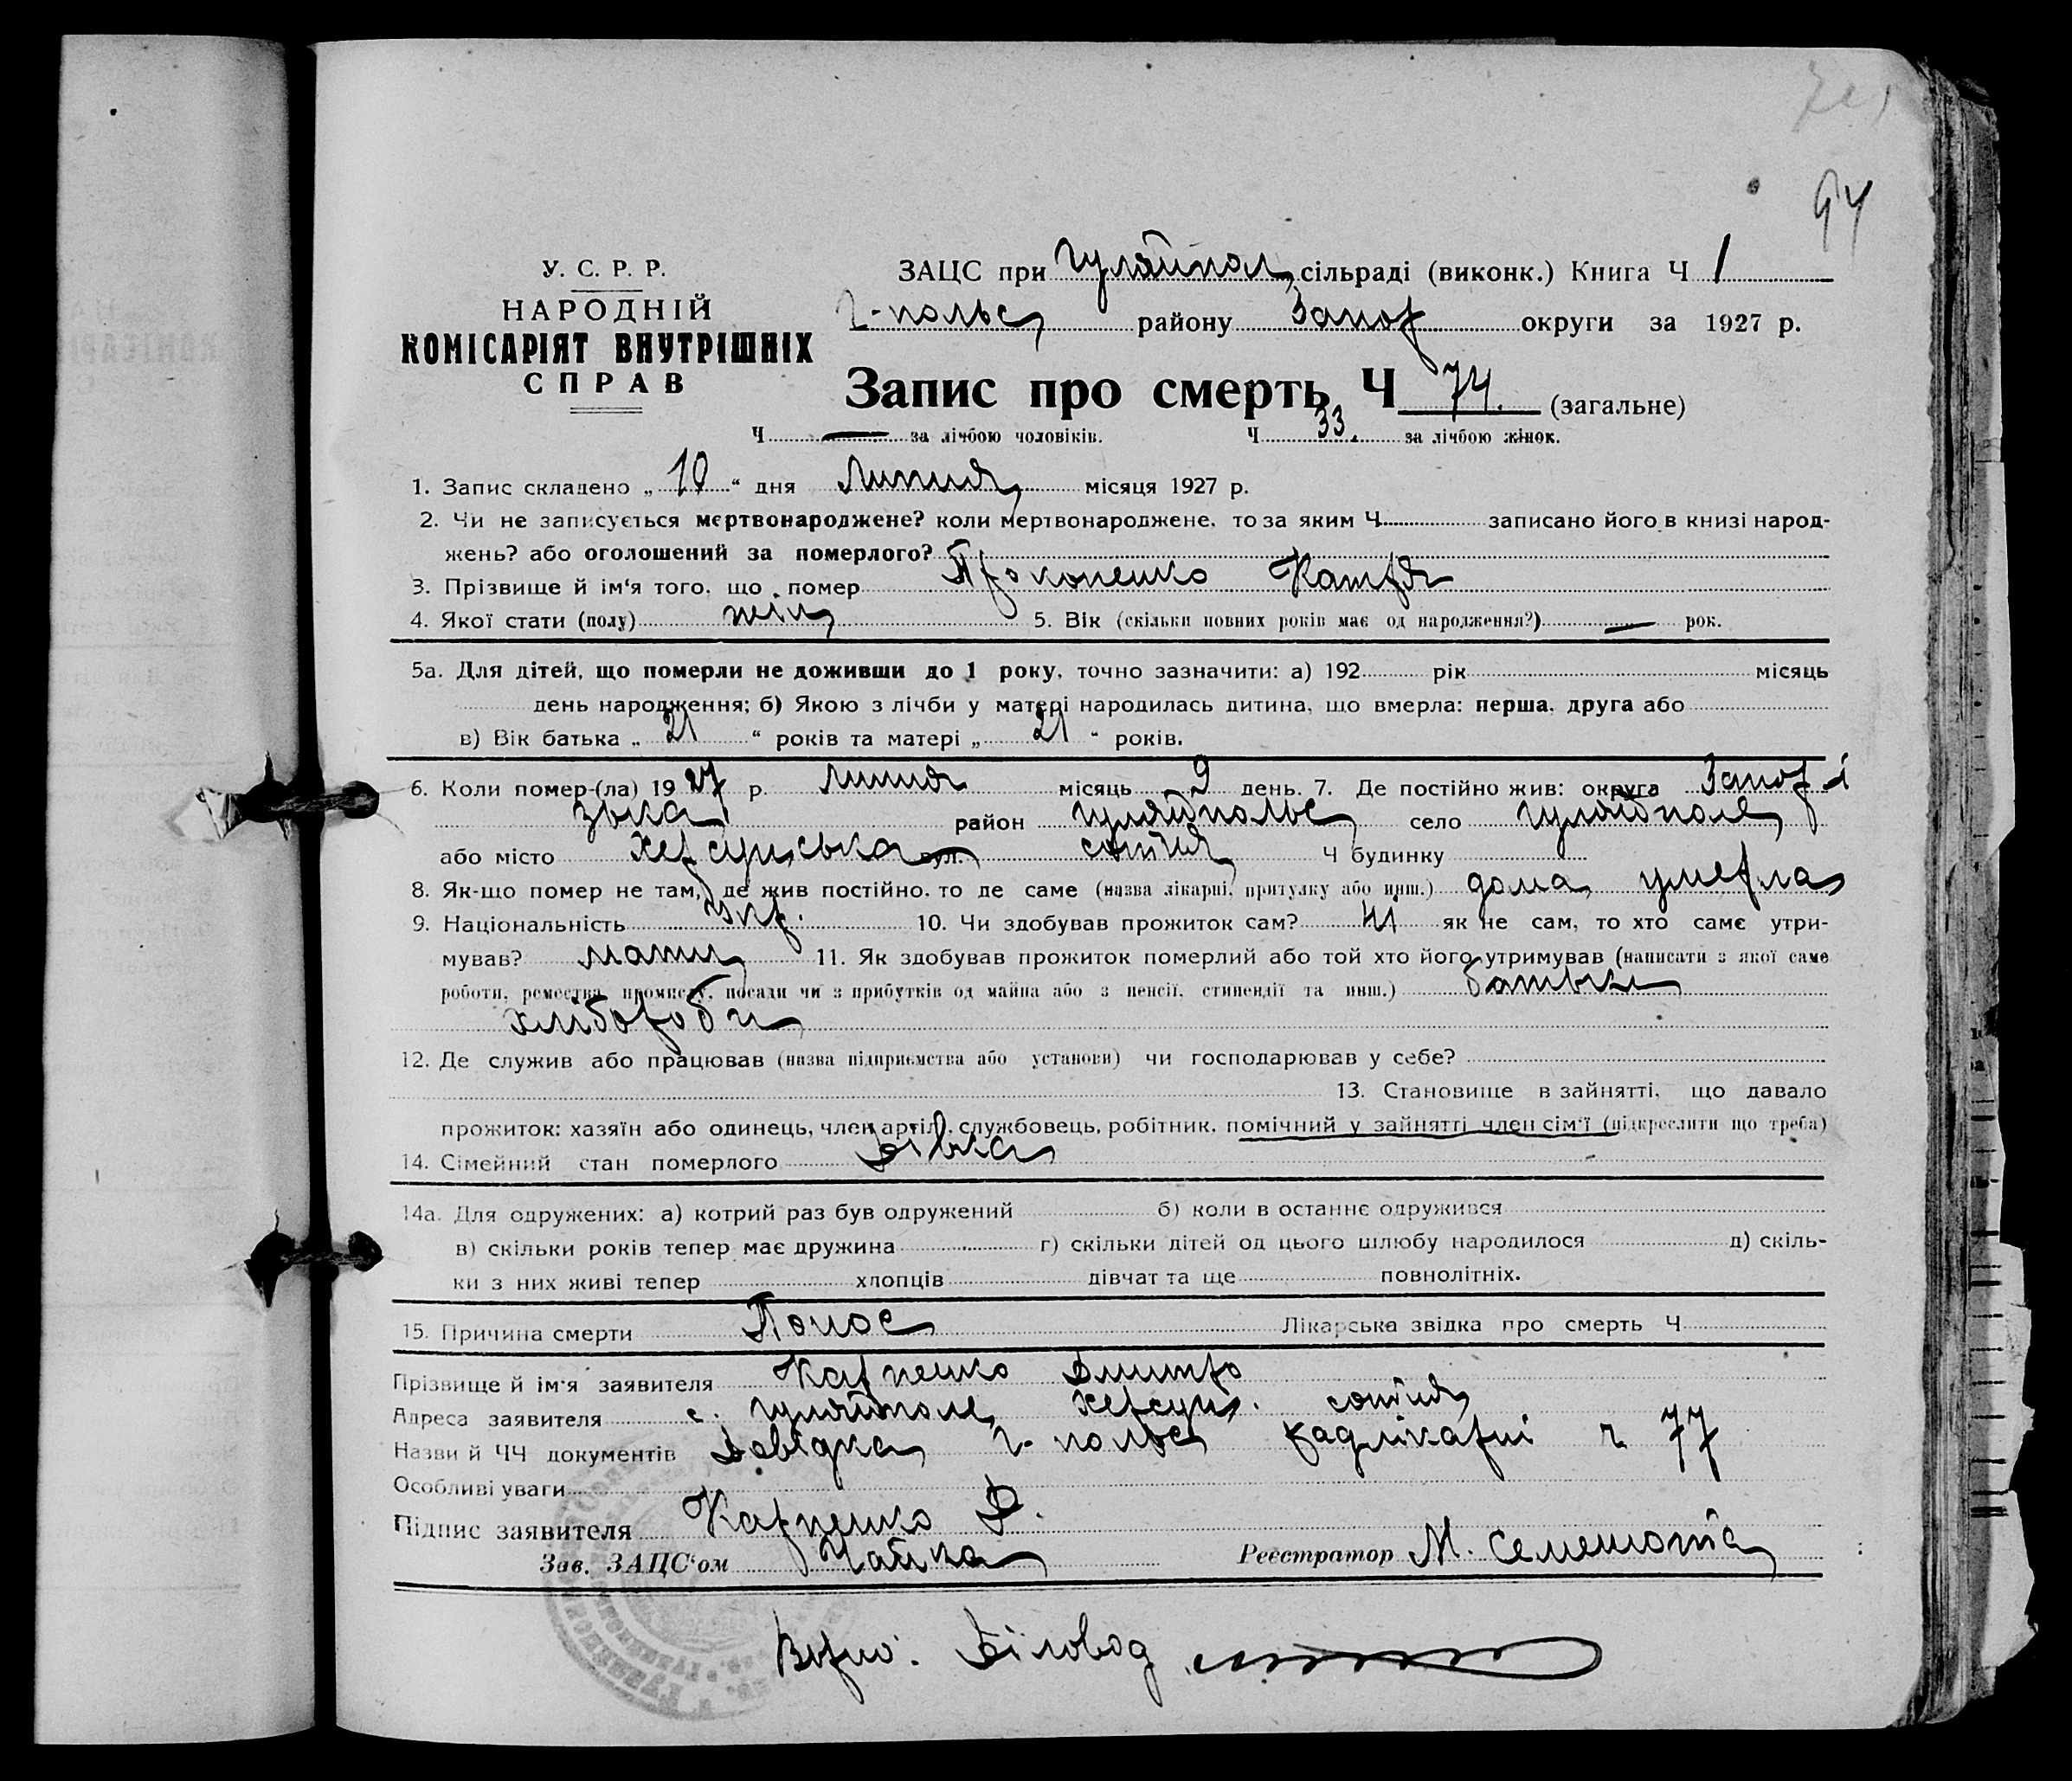 94
У. С. Р. Р.
НАРОДНІЙ
КОМІСАРІЯТ ВНУТРІШНІХ
СПРАВ
ЗАЦС при Гуляйпол сільраді (виконк.) Книга Ч 1
Г-польс району Запор округи за 1927 р.
Запис про смерть Ч 74. (загальне)
Ч — за лічбою чоловіків. Ч 33. за лічбою жінок.
1. Запис складено „ 10 “ дня Липня місяця 1927 р.
2. Чи не записується мертвонароджене? коли мертвонароджене, то за яким Ч записано його в книзі народ-
жень? або оголошений за померлого?
3. Прізвище й ім'я того, що помер Прокопенко Катря
4. Якої стати (полу) жін 5. Вік (скільки повних років має од народження?) — рок.
5а. Для дітей, що померли не доживши до 1 року, точно зазначити: а) 192 рік місяць
день народження; б) Якою з лічби у матері народилась дитина, що вмерла: перша, друга або
в) Вік батька „ 21 “ років та матері „ 21 “ років.
6. Коли помер-(ла) 1927 р. Липня місяць 9 день. 7. Де постійно жив: округа Запорі
зька район Гуляйпольс село Гуляйполе
або місто Херсунська вул. сотня Ч будинку
8. Як-що помер не там, де жив постійно, то де саме (назва лікарні, притулку або инш.) дома умерла
9. Національність укр. 10. Чи здобував прожиток сам? ні як не сам, то хто самє утри-
мував? мати 11. Як здобував прожиток померлий або той хто його утримував (написати з якої саме
роботи, ремества, промислу, посади чи з прибутків од майна або з пенсії, стипендії та инш.) батьки
хлібороби
12. Де служив або працював (назва підприємства або установи) чи господарював у себе?
13. Становище в зайнятті, що давало
прожиток: хазяїн або одинець, член артілі, службовець, робітник, помічний у зайнятті член сім'ї (підкреслити що треба)
14. Сімейний стан померлого Дівка
14а. Для одружених: а) котрий раз був одружений б) коли в останнє одружився
в) скільки років тепер має дружина г) скільки дітей од цього шлюбу народилося д) скіль-
ки з них живі тепер хлопців дівчат та ще повнолітніх.
15. Причина смерти Понос Лікарська звідка про смерть Ч
Прізвище й ім'я заявителя Карпенко Дмитро
Адреса заявителя с. Гуляйполе Херсун. сотня
Назви й ЧЧ документів Довідка Г-польс радлікарні ч 77
Особливі уваги
Підпис заявителя Карпенко Д.
Зав. ЗАЦС'ом Чайка Реєстратор М. Семенюта
Верно: Біловод